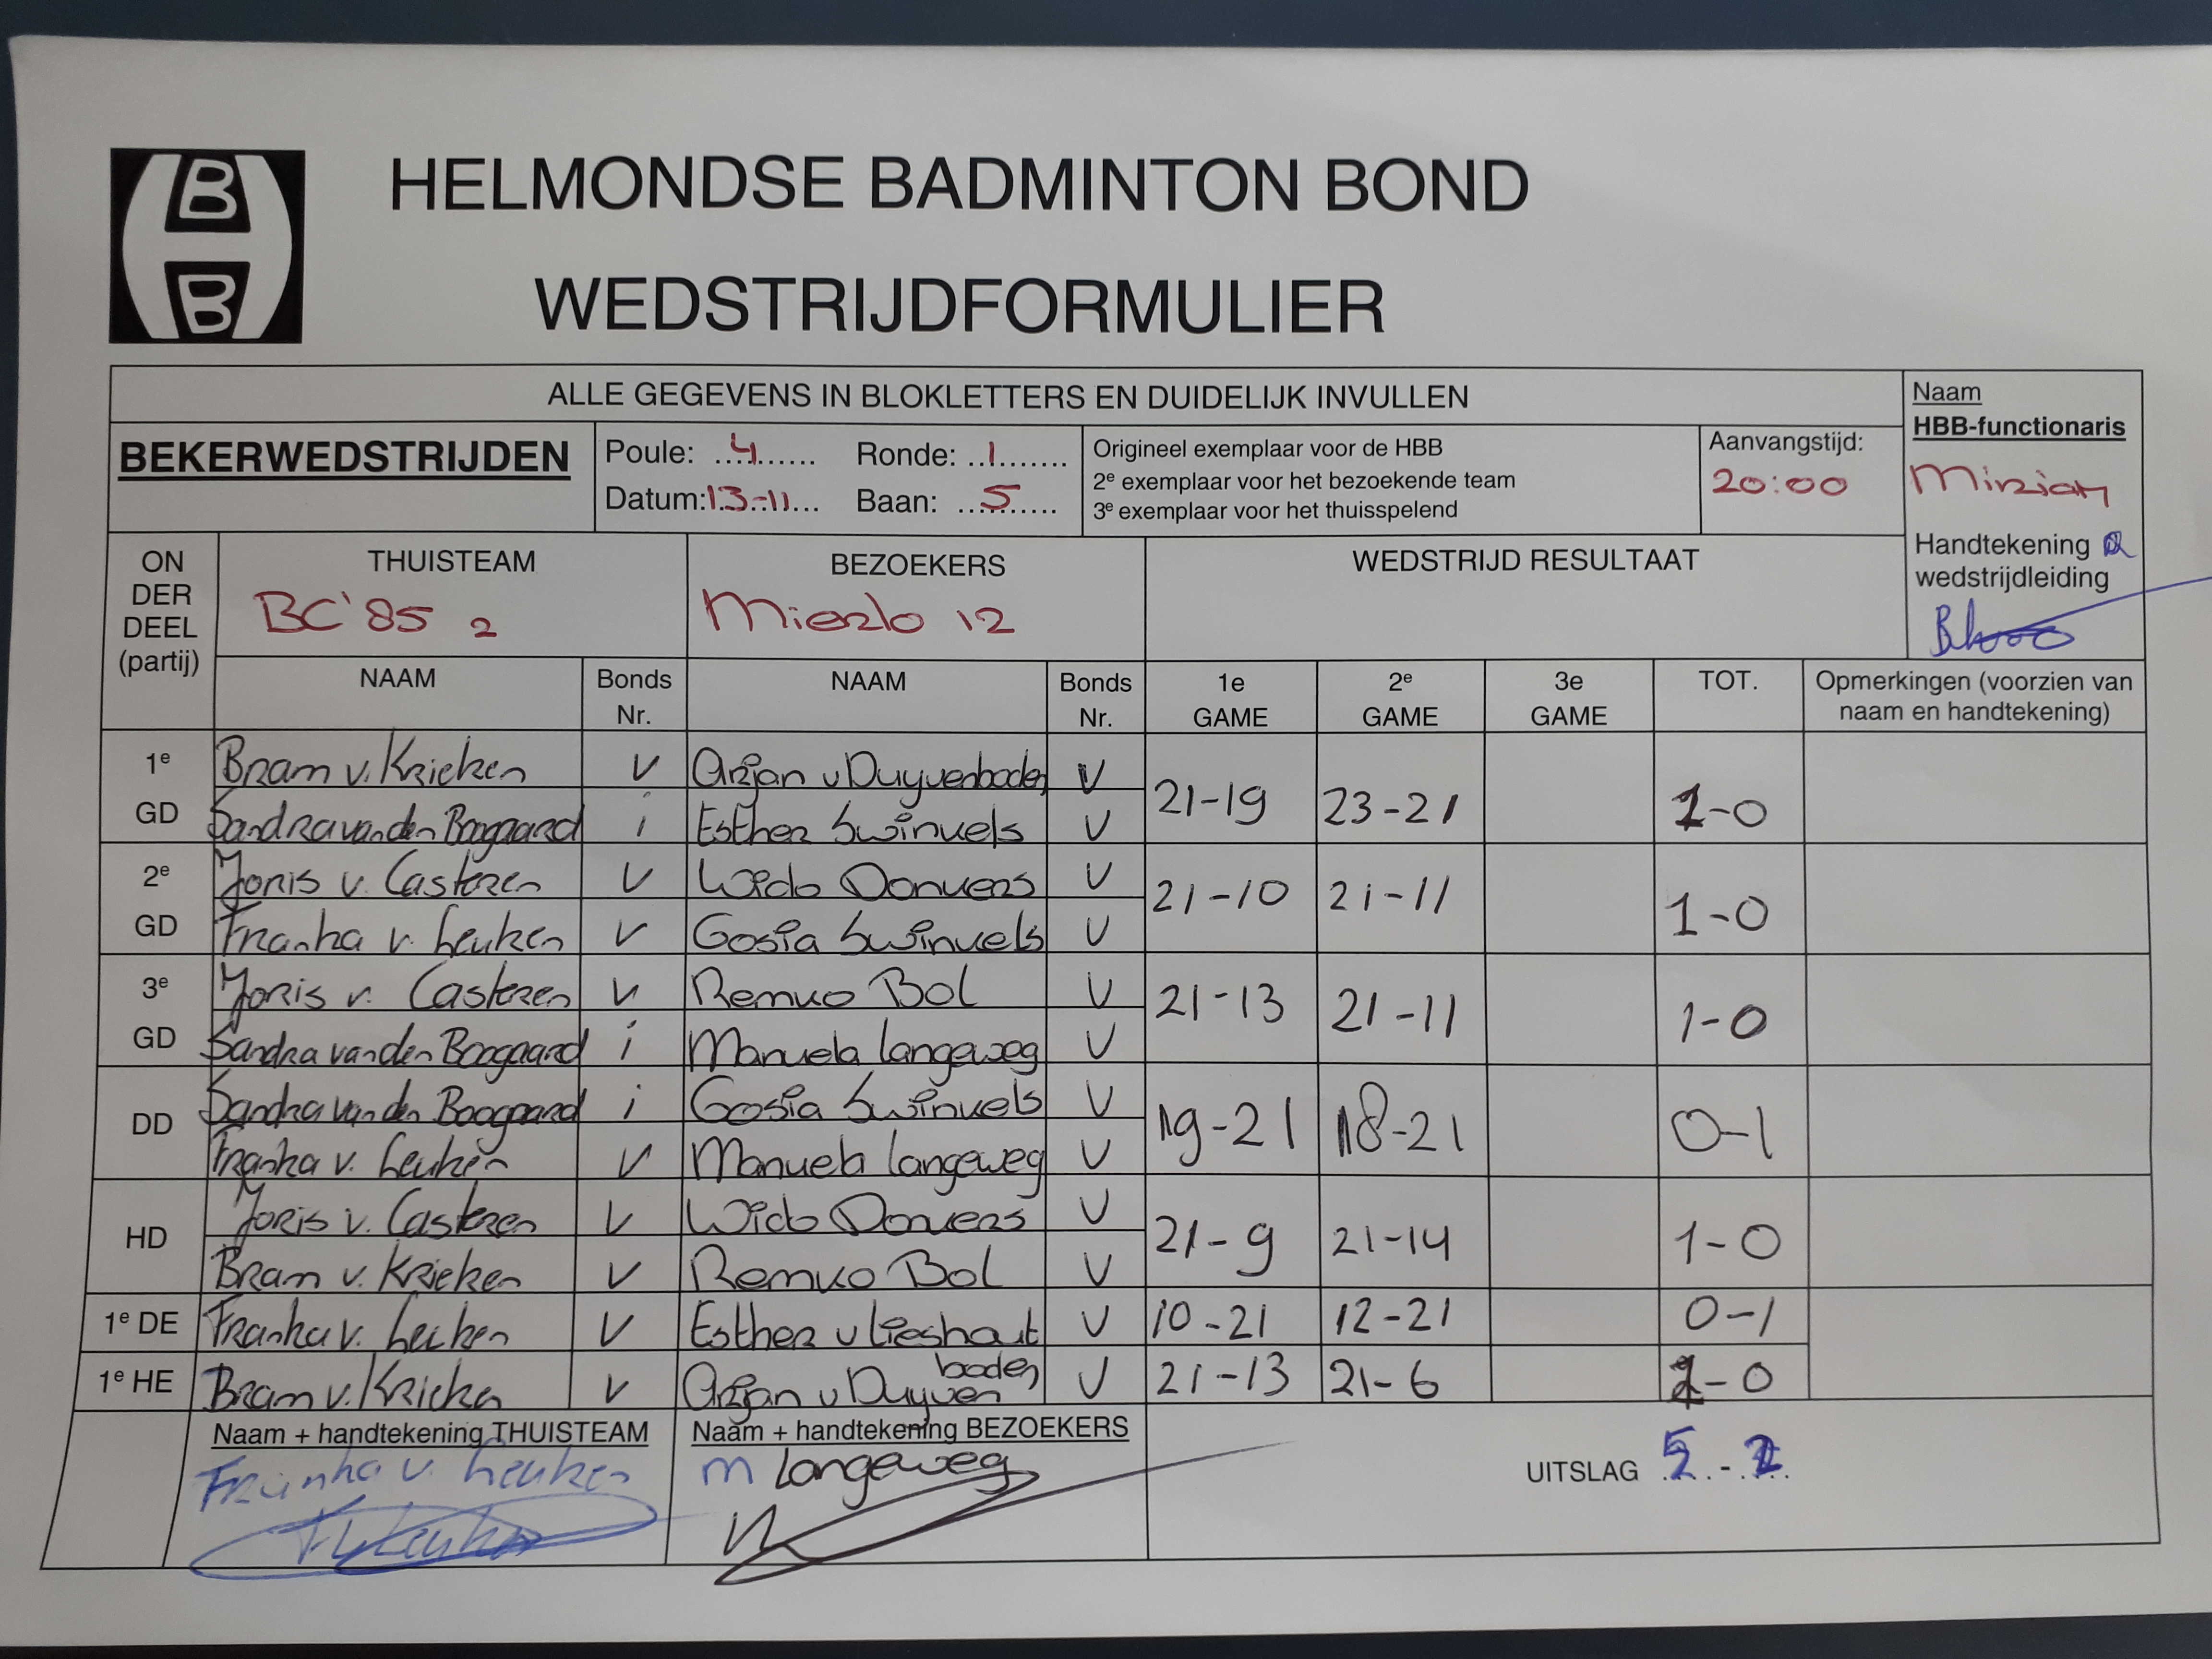 B
B
HELMONDSE BADMINTON BOND
WEDSTRIJDFORMULIER
ALLE GEGEVENS IN BLOKLETTERS EN DUIDELIJK INVULLEN
Naam
HBB-functionaris
Miriam
BEKERWEDSTRIJDEN
Poule: 4 Ronde: 1
Datum: 13-11 Baan: 5
Origineel exemplaar voor de HBB
2e exemplaar voor het bezoekende team
3e exemplaar voor het thuisspelend
Aanvangstijd:
20:00
Handtekening
wedstrijdleiding
ON
DER
DEEL
(partij)
THUISTEAM
BC'85 2
BEZOEKERS
Mierlo 12
WEDSTRIJD RESULTAAT
NAAM Bonds Nr. NAAM Bonds Nr. 1e GAME 2e GAME 3e GAME TOT. Opmerkingen (voorzien van naam en handtekening)
1e Bram v. Krieken V Arjan v Duyvenboden V
GD Sandra van den Boogaard i Esther Swinkels V 21-19 23-21 1-0
2e Joris v. Casteren V Wido Donkers V
GD Franka v. Leuken V Gosia Swinkels V 21-10 21-11 1-0
3e Joris v. Casteren V Remko Bol V
GD Sandra van den Boogaard i Manuela Langeweg V 21-13 21-11 1-0
DD Sandra van den Boogaard i Gosia Swinkels V 19-21 18-21 0-1
Franka v. Leuken V Manuela Langeweg V
HD Joris v. Casteren V Wido Donkers V 21-9 21-14 1-0
Bram v. Krieken V Remko Bol V
1e DE Franka v. Leuken V Esther v Lieshout V 10-21 12-21 0-1
1e HE Bram v. Krieken V Arjan v Duyvenboden V 21-13 21-6 1-0
Naam + handtekening THUISTEAM
Franka v. Leuken
Naam + handtekening BEZOEKERS
M Langeweg
UITSLAG 5 - 2